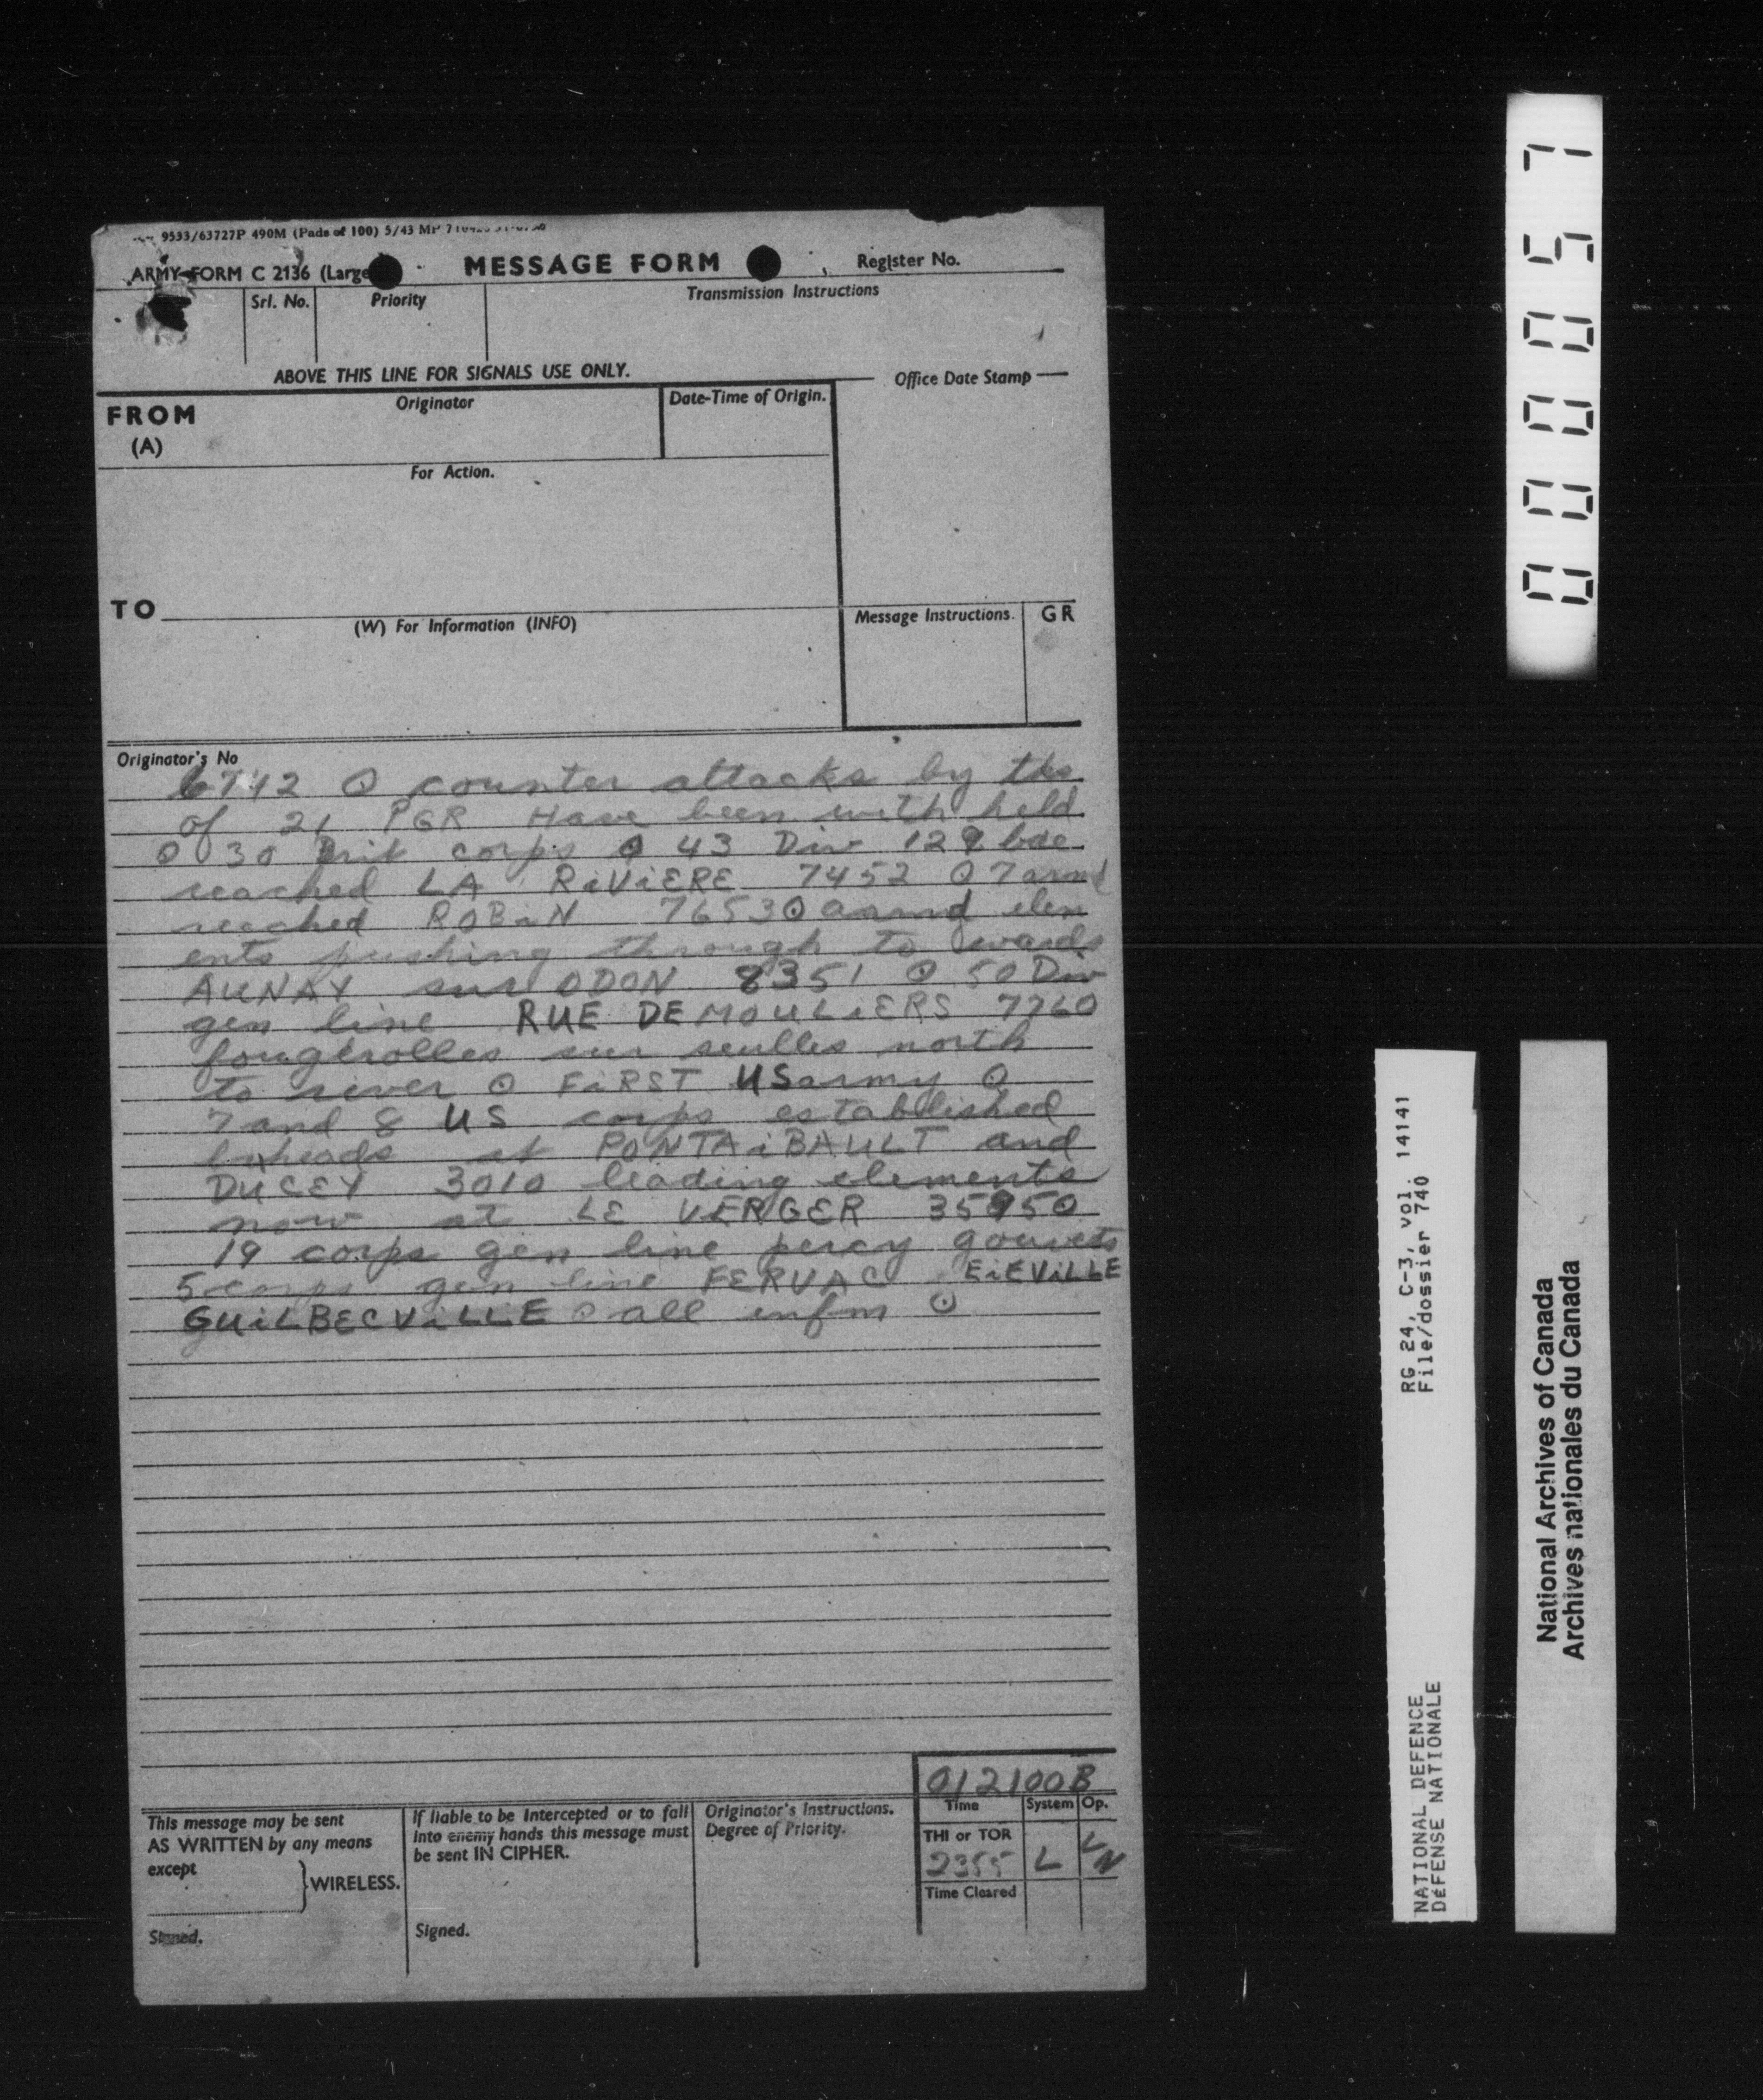 9533/63727P 490M (Pads of 100) 5/43 MP
ARMY FORM C 2136 (Large MESSAGE FORM Register No.
Srl. No. Priority Transmission Instructions
ABOVE THIS LINE FOR SIGNALS USE ONLY.
Office Date Stamp
FROM (A) Originator Date-Time of Origin.
For Action.
TO
(W) For Information (INFO) Message Instructions. GR
Originator's No
6742 O counter attacks by tks
of 21 PGR Have been with held
O 30 Brit corps O 43 Div 129 bde
reached LA RiViERE 7452 O 7 armd
reached ROBiN 7653 O armd elem
ents pushing through to wards
AUNAY sur ODON 8351 O 50 Div
gen line RUE DE MOULiERS 7760
fougerolles sur seulles north
to river O FiRST US army O
7 and 8 US corps established
bheads at PONTAiBAULT and
DUCEY 3010 leading elements
now at LE VERGER 3595 O
19 corps gen line percy gouvets
5 corps gen line FERVAC EiEViLLE
GUiLBECViLLE O all infm O
012100B
Time System Op.
THI or TOR
2355 L
Time Cleared
This message may be sent
AS WRITTEN by any means
except
WIRELESS.
Signed.
If liable to be intercepted or to fall
into enemy hands this message must
be sent IN CIPHER.
Signed.
Originator's Instructions.
Degree of Priority.
000057
RG 24, C-3, vol. 14141
File/dossier 740
NATIONAL DEFENCE
DÉFENSE NATIONALE
National Archives of Canada
Archives nationales du Canada